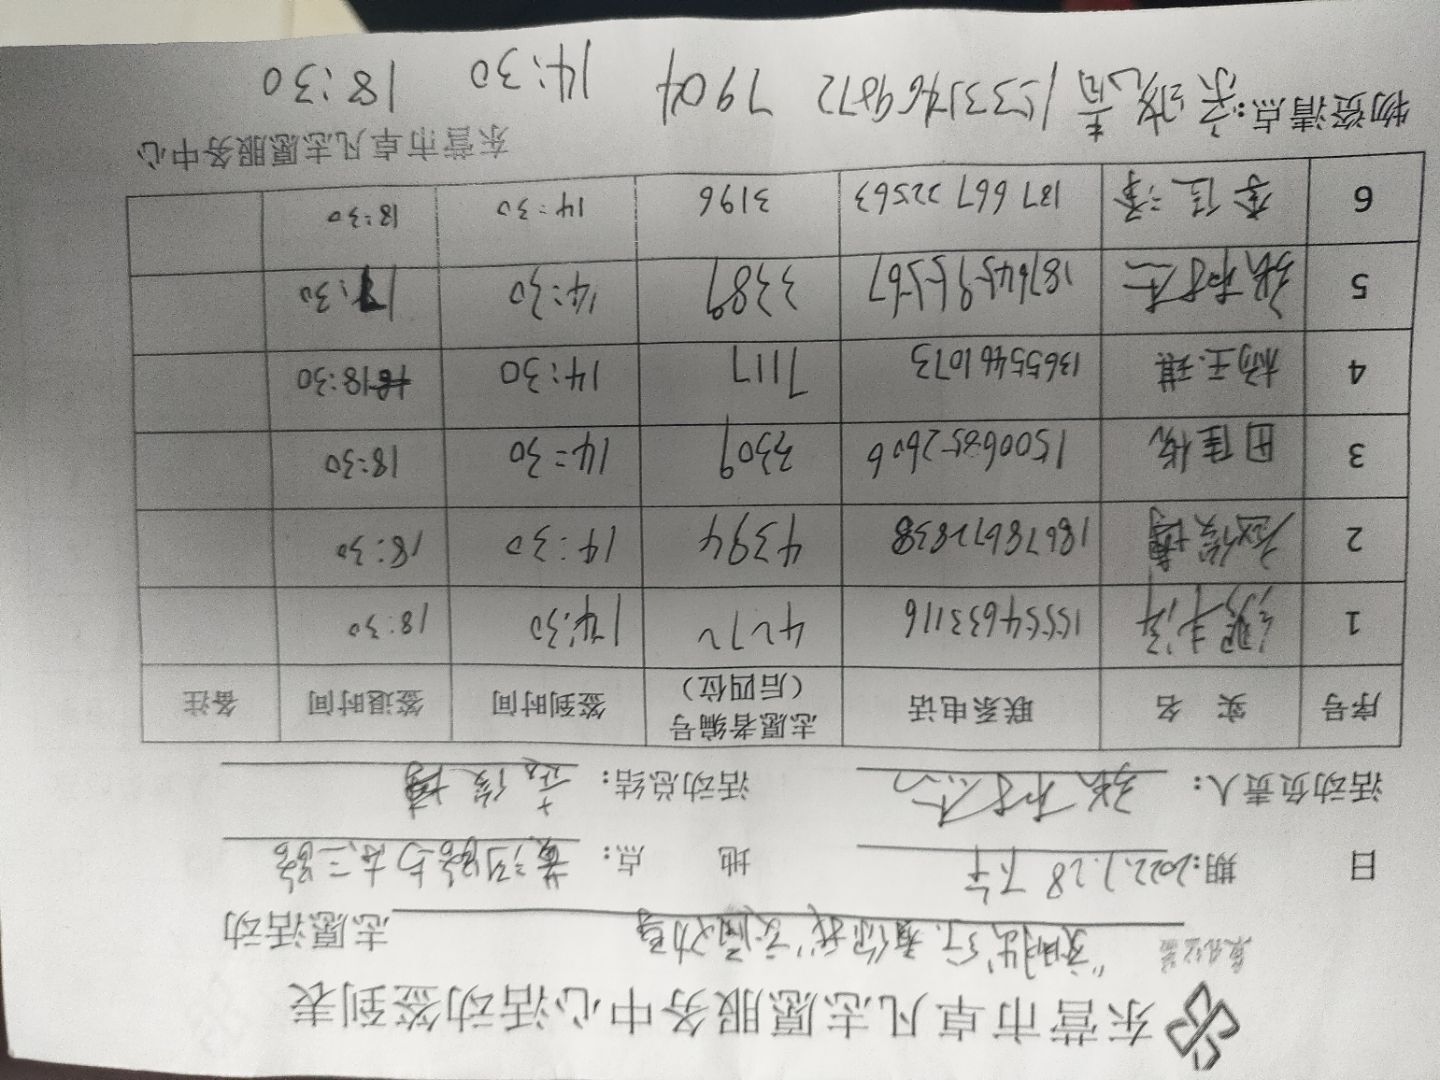 东营市卓凡志愿服务中心活动签到表
"文明出行.有你我"交通劝导 志愿活动
日 期:2022.1.28 下午 地 点: 黄河路与东二路
活动负责人: 活动总结:
序号 实 名 联系电话 志愿者编号(后四位) 签到时间 签退时间 备注
1 15554633116 4272 14:30 18:30
2 18678672838 4394 14:30 18:30
3 田佳悦 15006852606 3309 14:30 18:30
4 杨玉琪 13655461073 7117 14:30 18:30
5 18764595567 3389 14:30 18:30
6 李佳 13766722563 3196 14:30 18:30
东营市卓凡志愿服务中心
物资清点: 15331469872 7904 14:30 18:30